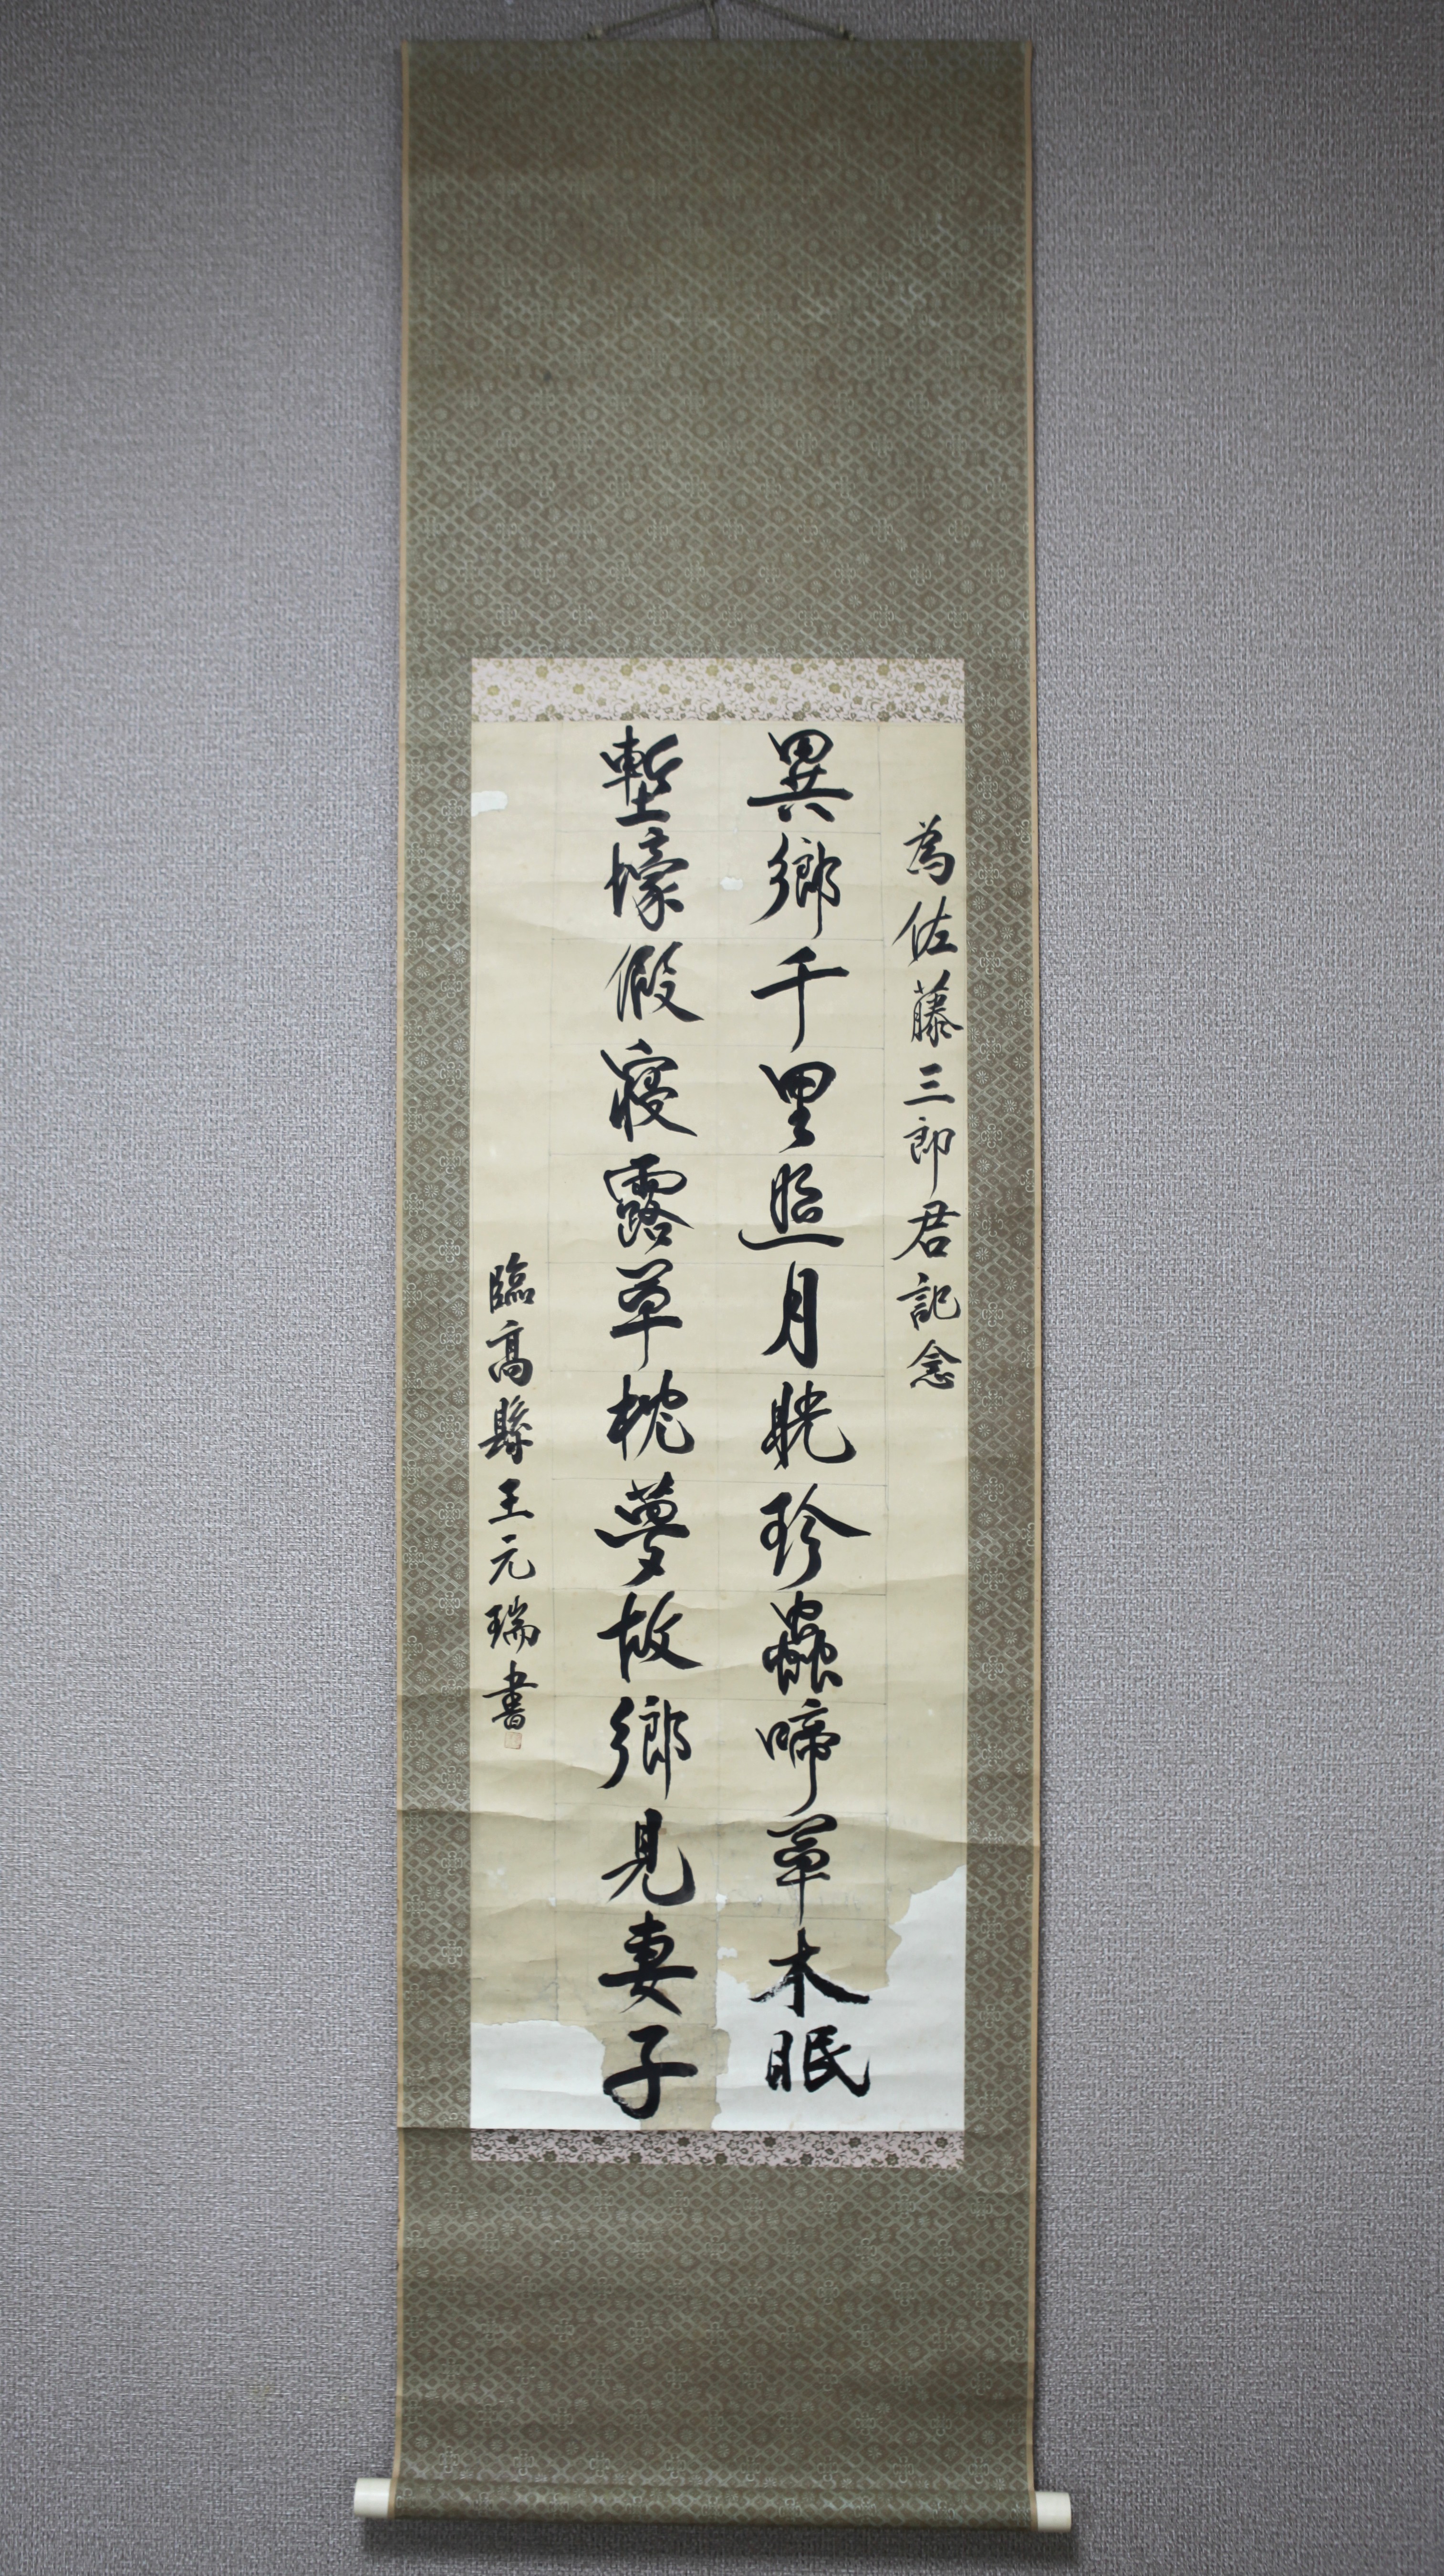 為佐藤三郎君記念
異鄉千里照月晄珍蟲啼草木眠
塹壕假寝露草枕夢故鄉見妻子
臨高縣王元瑞書